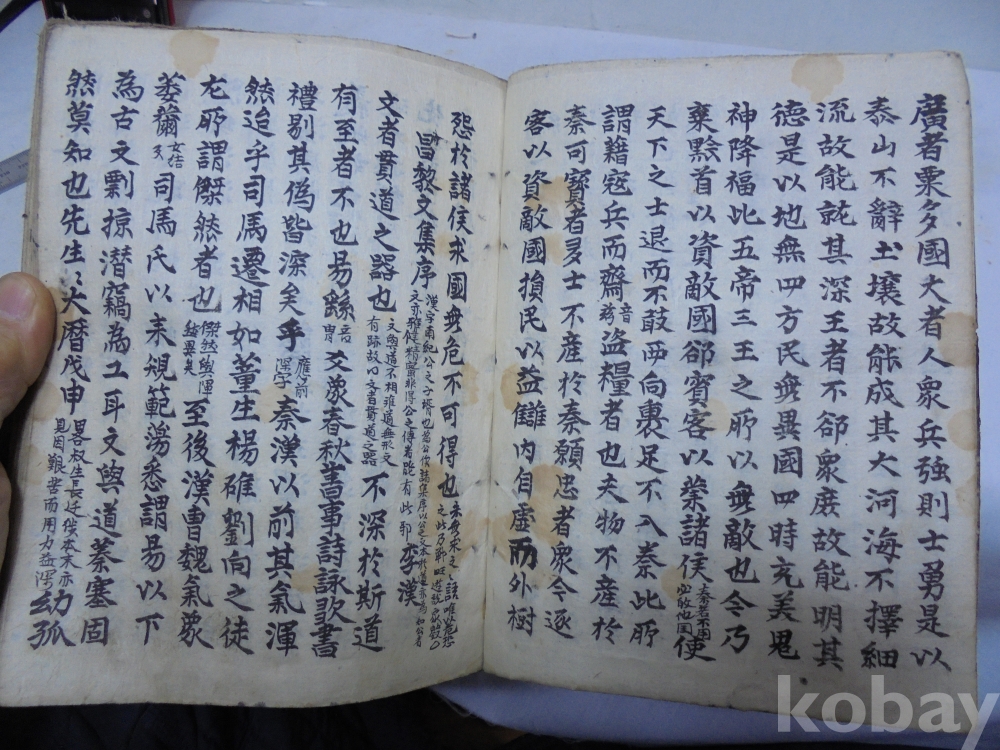 廣者粟多國大者人衆兵强則士勇是以
泰山不辭土壤故能成其大河海不擇細
流故能就其深王者不卻衆庶故能明其
德是以地無四方民無異國四時充美鬼
神降福此五帝三王之所以無敵也今乃
棄黔首以資敵國卻賓客以業諸侯使
天下之士退而不敢西向裹足不入秦此所
謂籍寇兵而齎音盜糧者也夫物不産於
秦可寶者多士不産於秦願忠者衆今逐
客以資敵國損民以益讎內自虛而外樹
怨於諸侯求國無危不可得也
昌黎文集序 李漢
文者貫道之器也 不深於斯道
有至者不也易繇音冑爻象春秋書事詩詠歌書
禮剔其僞皆深矣乎應前深字秦漢以前其氣渾
然迨乎司馬遷相如董生楊雄劉向之徒
尤所謂傑然者也 至後漢曹魏氣象
萎薾 司馬氏以來規範蕩悉謂易以下
為古文剽掠潛竊為工耳文與道蓁塞固
然莫知也先生〻大曆戊申 幼孤
kobay